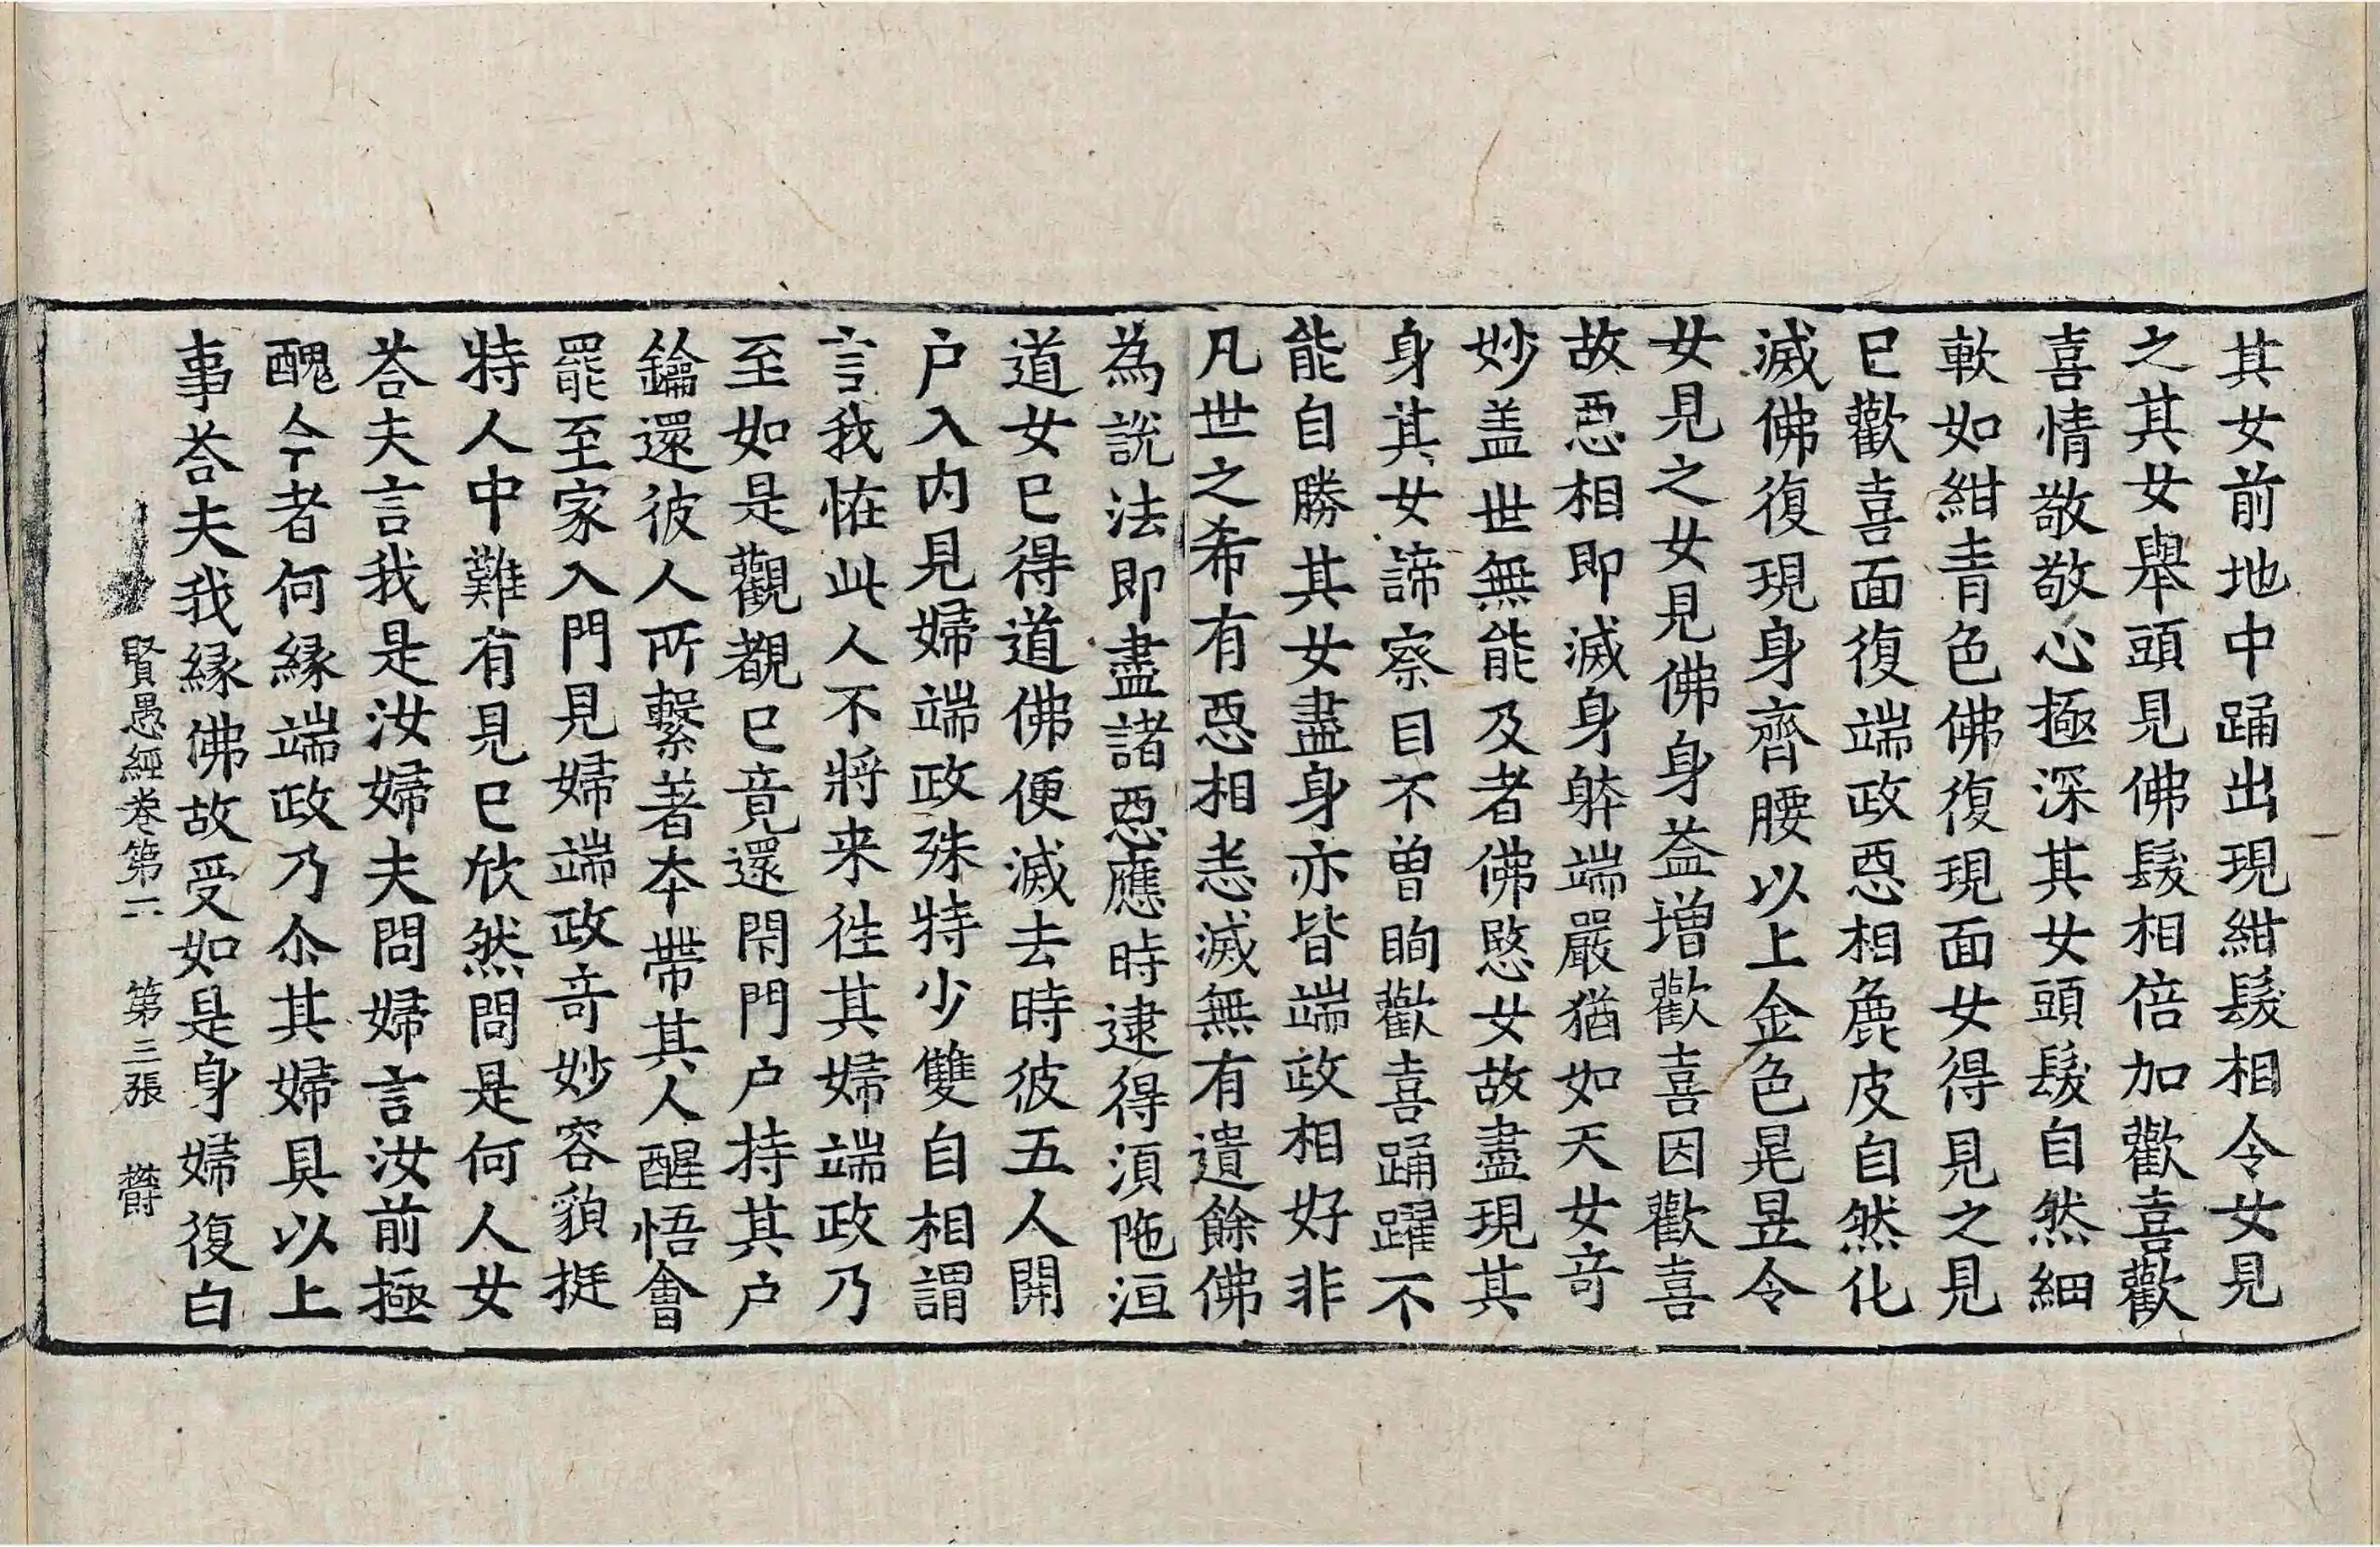 其女前地中踊出現紺髮相令女見
之其女舉頭見佛髮相倍加歡喜歡
喜情敬敬心極深其女頭髮自然細
軟如紺青色佛復現面女得見之見
已歡喜面復端政惡相麁皮自然化
滅佛復現身齊腰以上金色晃昱令
女見之女見佛身益增歡喜因歡喜
故惡相即滅身躰端嚴猶如天女竒
妙盖世無能及者佛愍女故盡現其
身其女諦察目不曾眴歡喜踊躍不
能自勝其女盡身亦皆端政相好非
凡世之希有惡相悉滅無有遺餘佛
為說法即盡諸惡應時逮得湏陁洹
道女已得道佛便滅去時彼五人開
户入内見婦端政殊特少雙自相謂
言我恠此人不將来徃其婦端政乃
至如是觀覩已竟還閇門户持其户
鑰還彼人所繫著夲帶其人醒悟會
罷至家入門見婦端政竒妙容貌挺
特人中難有見已欣然問是何人女
荅夫言我是汝婦夫問婦言汝前極
醜今者何緣端政乃尒其婦具以上
事荅夫我緣佛故受如是身婦復白
賢愚經卷第二 第三張 欝